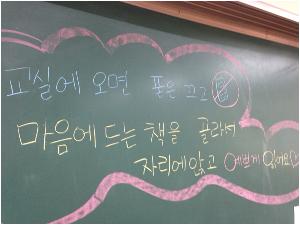 교실에 오면 폰은 끄고
마음에 드는 책을 골라서
자리에 앉고 예쁘게 읽어요